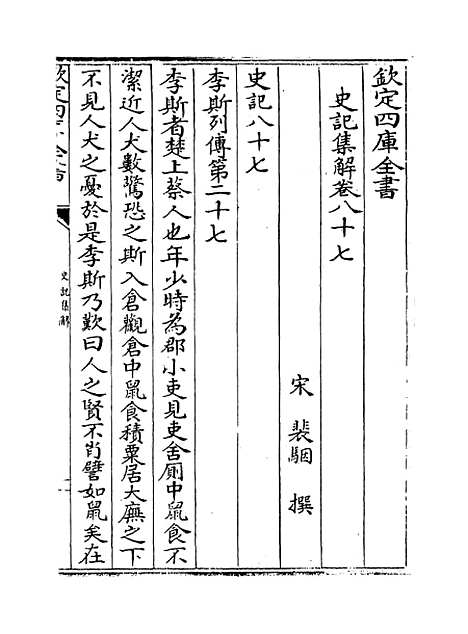 欽定四庫全書
史記集解卷八十七
宋 裴駰 撰
史記八十七
李斯列傳第二十七
李斯者楚上蔡人也年少時為郡小吏見吏舍厠中鼠食不
潔近人犬數驚恐之斯入倉觀倉中鼠食積粟居大廡之下
不見人犬之憂於是李斯乃歎曰人之賢不肖譬如鼠矣在
欽定四庫全書
史記集解